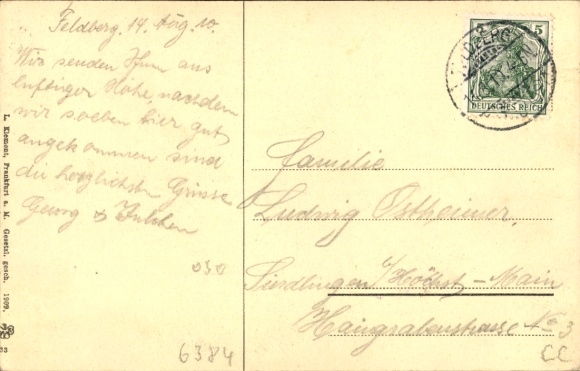 Feldberg, 14 Aug. 10.
Wir senden Ihnen aus
luftiger Höhe, nachdem
wir soeben hier gut
angekommen sind
die herzlichsten Grüsse
Georg &
030
6384
L. Klement, Frankfurt a. M. Gesetzl. gesch. 1909.
33
5
FELDBERG
DEUTSCHES REICH
Familie
Ludwig Ostheimer,
Sindlingen / Höchst-Main
Haingrabenstrasse No 3
CC